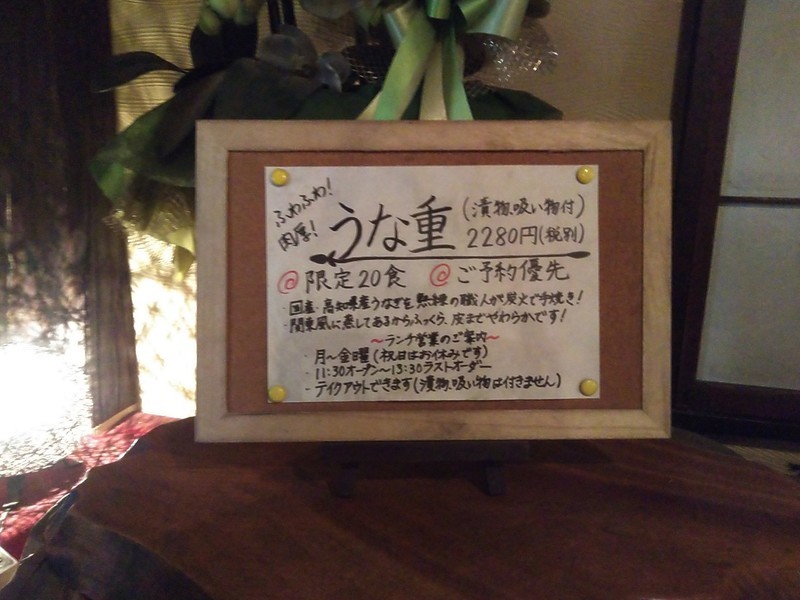 ふわふわ!
肉厚!
うな重
(漬物、吸い物付)
2280円(税別)
@限定20食 @ご予約優先
・国産・高知県産うなぎを熟練の職人が炭火で手焼き!
・関東風に蒸してあるからふっくら、皮までやわらかです!
〜ランチ営業のご案内〜
・月〜金曜(祝日はお休みです)
・11:30オープン〜13:30ラストオーダー
・テイクアウトできます(漬物、吸い物は付きません)